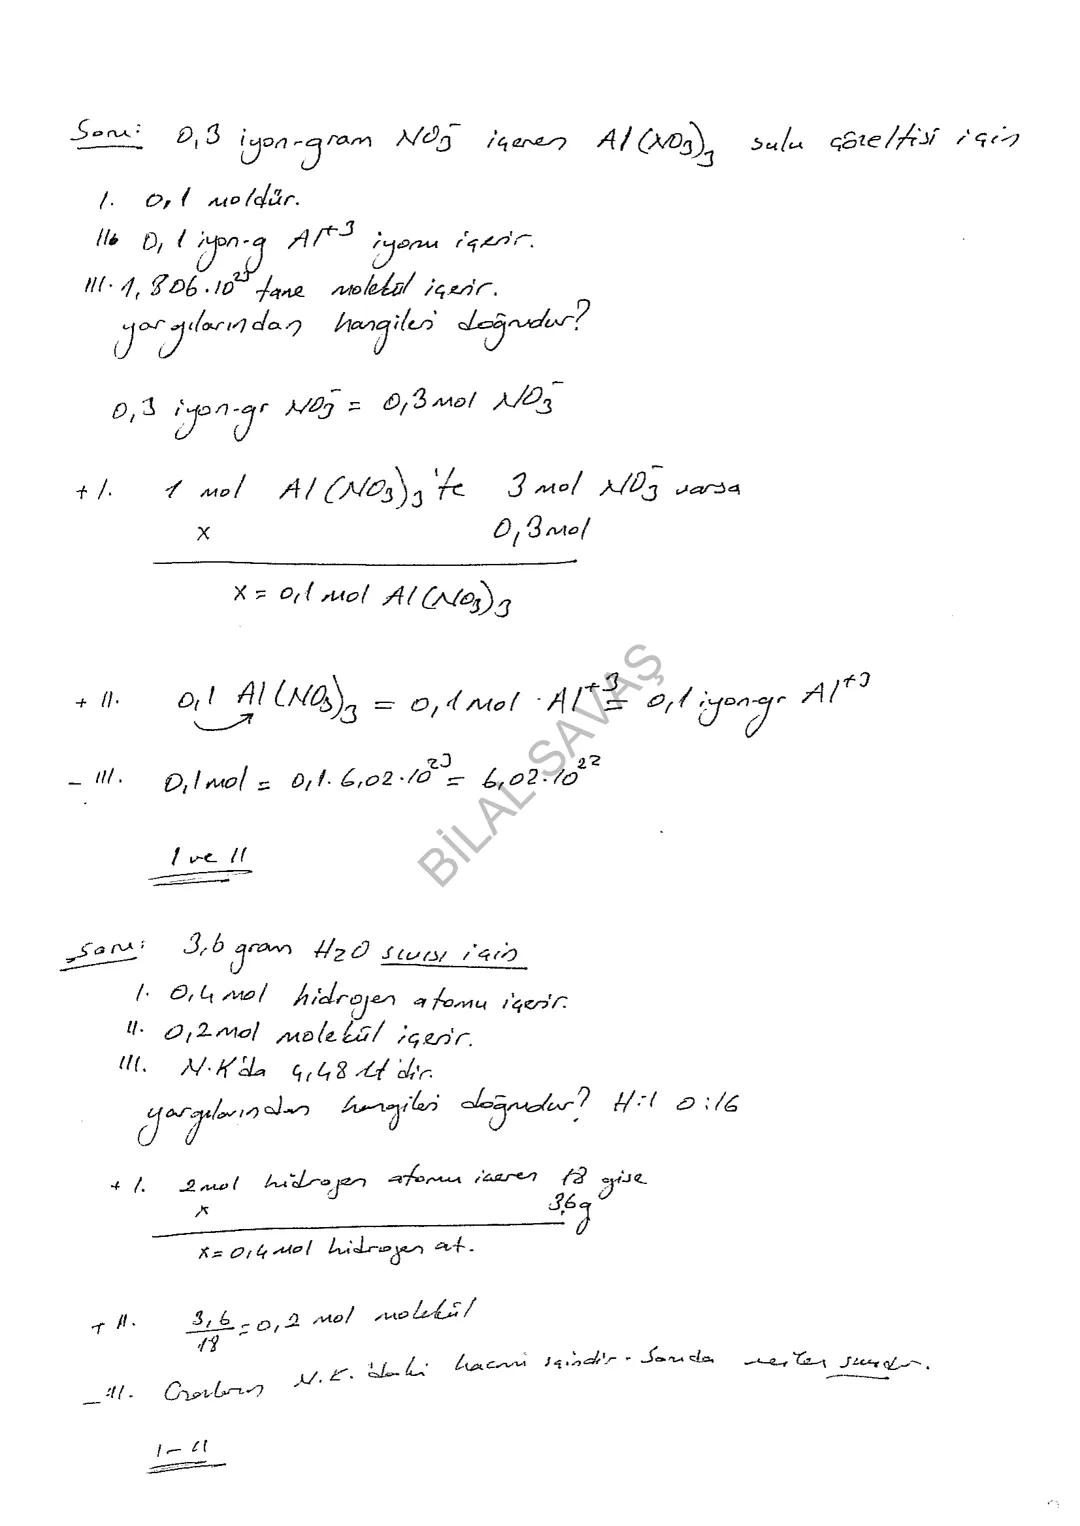 Soru: 0,3 iyon-gram NO3⁻ içeren Al(NO3)3 sulu çözeltisi için
I. 0,1 moldür.
II. 0,1 iyon-g Al⁺³ iyonu içerir.
III. 1,806.10²³ tane molekül içerir.
yargılarından hangileri doğrudur?
0,3 iyon-gr NO3⁻ = 0,3 mol NO3⁻
+ I. 1 mol Al(NO3)3'te 3 mol NO3⁻ varsa
x 0,3 mol
x = 0,1 mol Al(NO3)3
+ II. 0,1 Al(NO3)3 = 0,1 mol Al⁺³ = 0,1 iyon-gr Al⁺³
- III. 0,1 mol = 0,1.6,02.10²³ = 6,02.10²²
I ve II
BİLAL SAVAŞ
Soru: 3,6 gram H2O sıvısı için
I. 0,4 mol hidrojen atomu içerir.
II. 0,2 mol molekül içerir.
III. N.K'da 4,48 lt'dir.
yargılarından hangileri doğrudur? H:1 O:16
+ I. 2 mol hidrojen atomu içeren 18 g ise
x 3,6g
x = 0,4 mol hidrojen at.
+ II. 3,6/18 = 0,2 mol molekül
- III. Gazların N.K.'daki hacmi içindir. Soruda verilen sıvıdır.
I - II